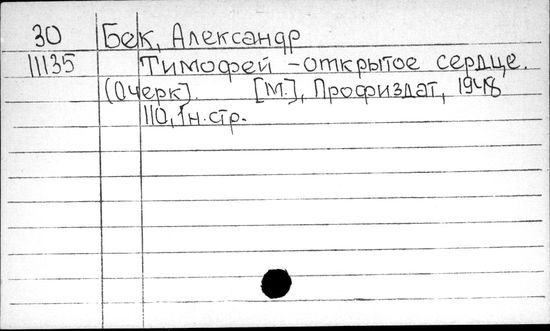 30 Бек, Александр
11135 Тимофей - открытое сердце.
(Очерк]. [М.], Профиздат, 1948
110, 1 н. стр.